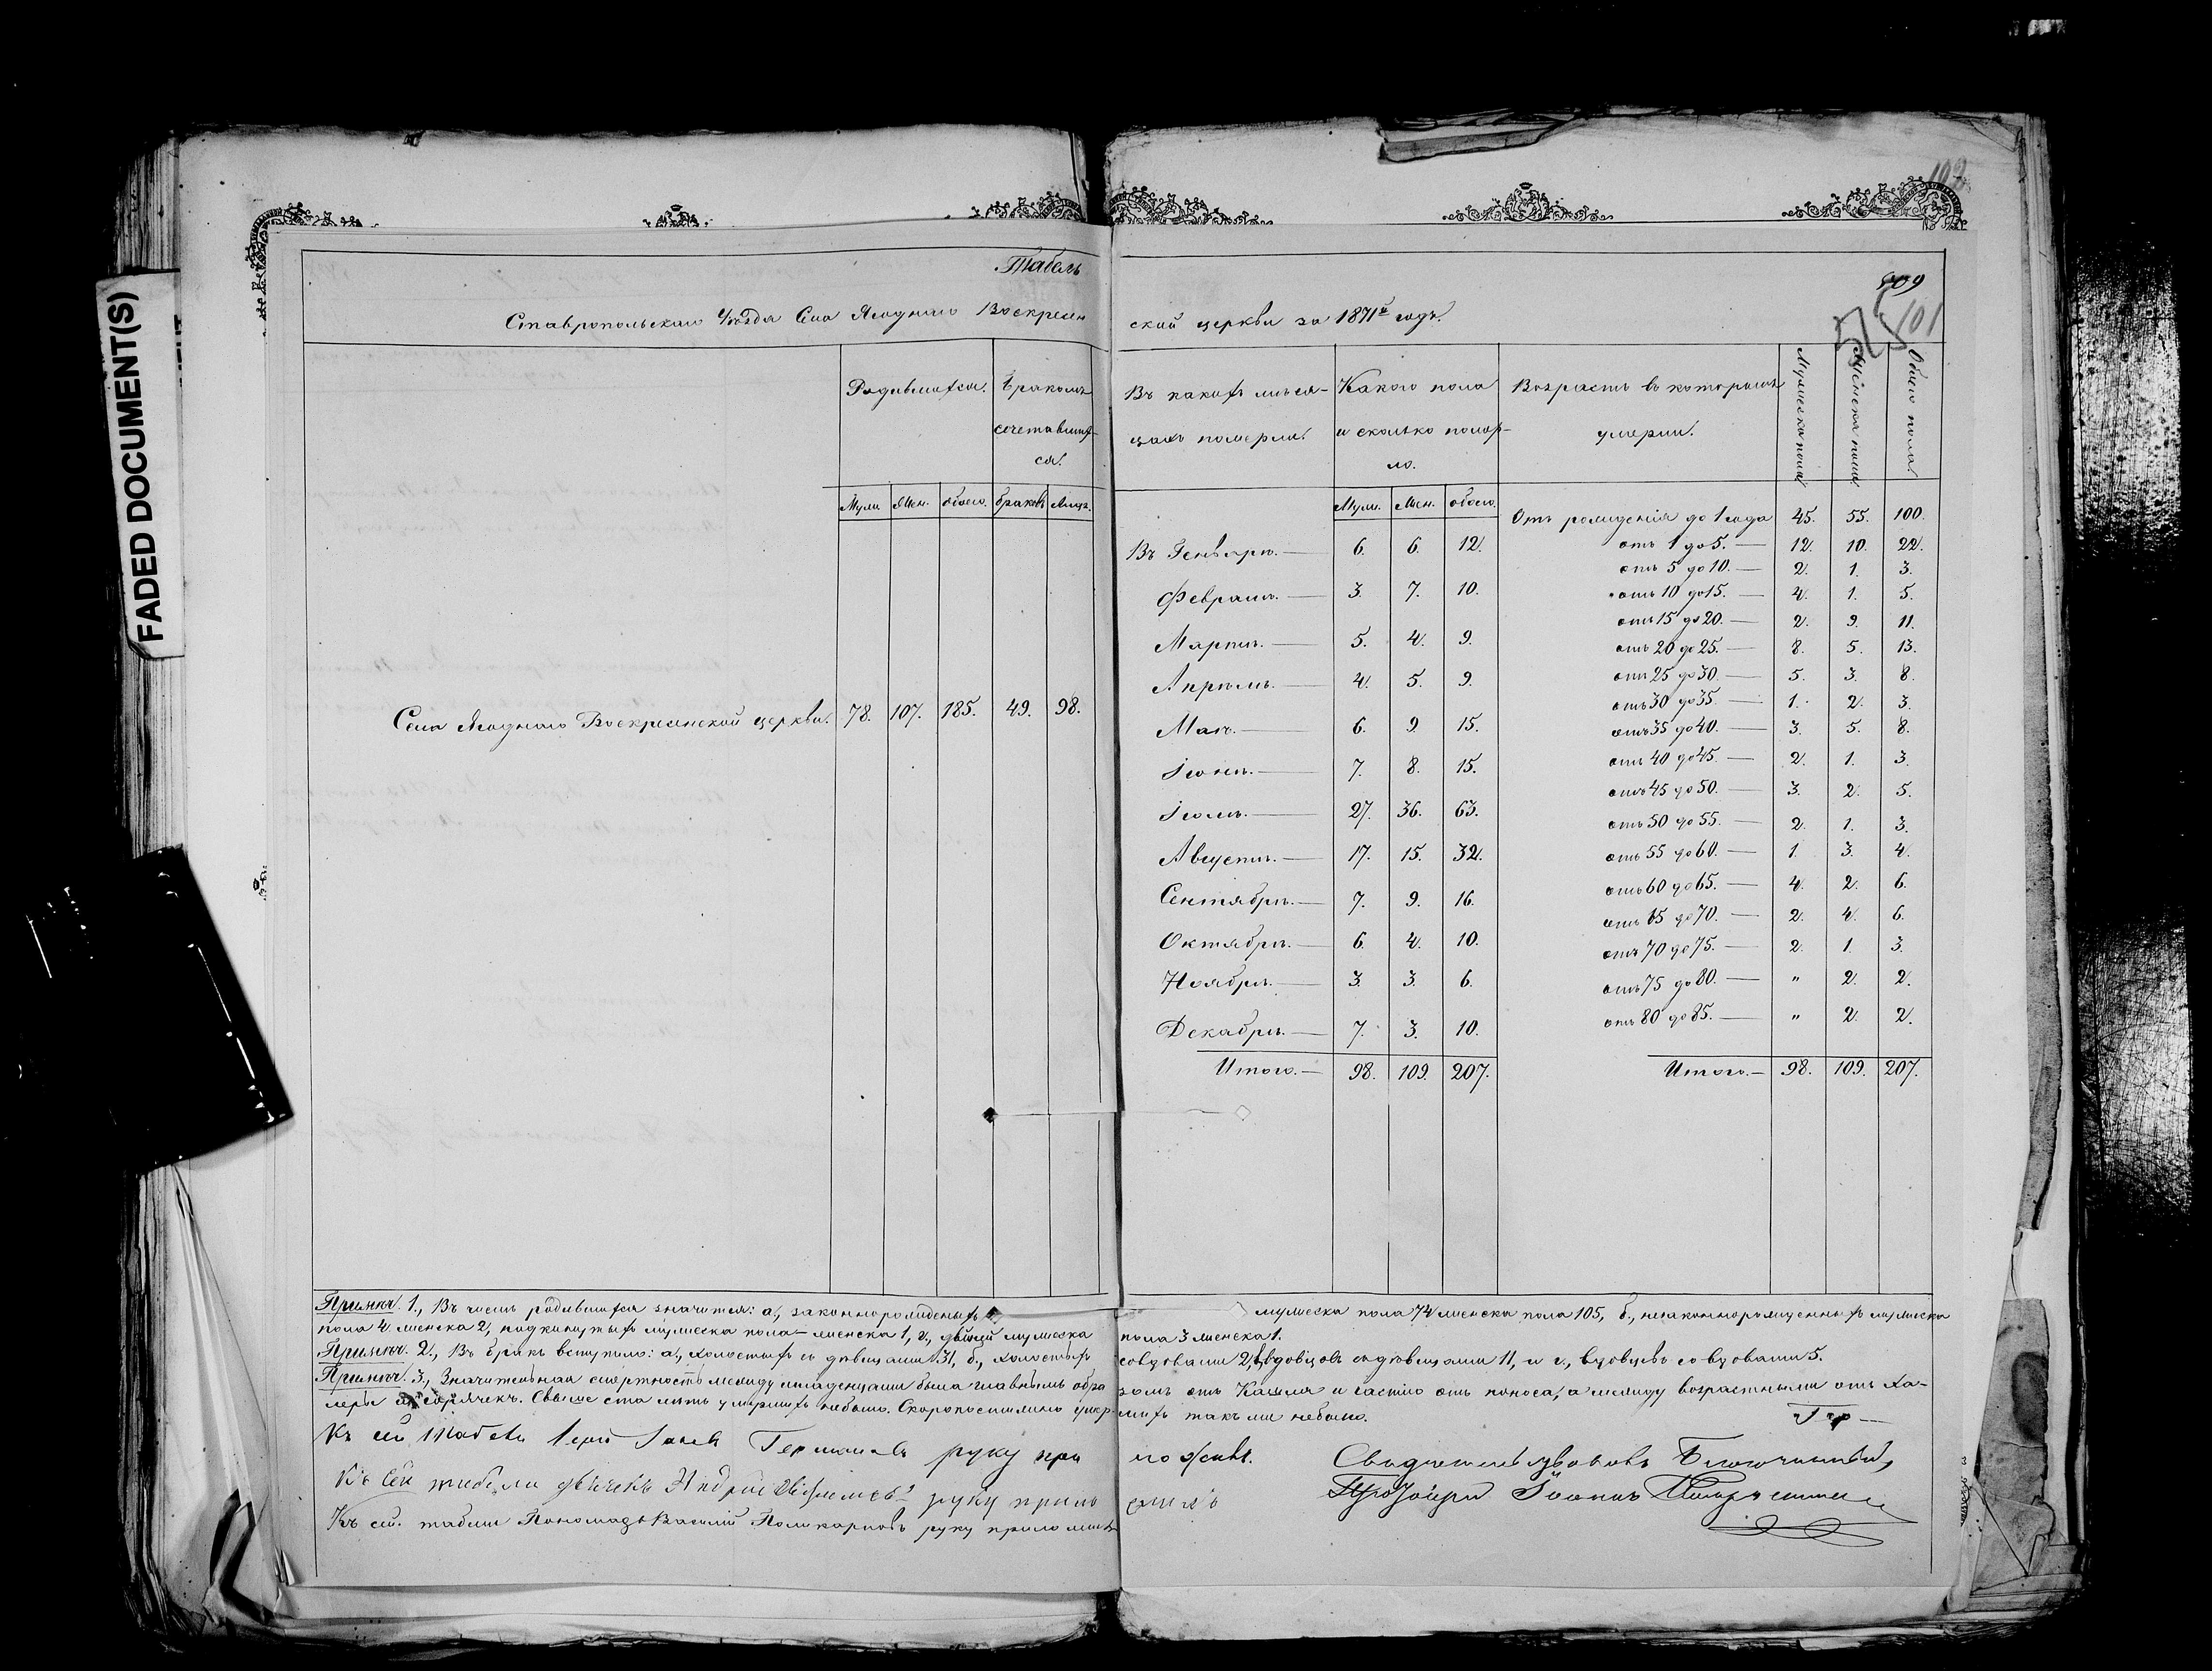 FADED DOCUMENT(S)
109
101
Табель
Ставропольскаго Уѣзда Села Ягоднаго Воскресенской церкви за 1871й годъ.
Родившихся. Бракомъ сочетавшихся.
Муж. Жен. обоего. браковъ Лицъ.
Села Ягоднаго Воскресенской церкви. 78. 107. 185. 49. 98.
Въ какихъ мѣсяцахъ померли. Какого пола и сколько помер-ло. Возрастъ въ которомъ умерли. Мужеска пола Женска пола Обоего пола
Муж. Жен. обоего.
Въ Генварѣ. — 6. 6. 12.
Февралѣ. — 3. 7. 10.
Мартѣ. — 5. 4. 9.
Апрѣлѣ. — 4. 5. 9.
Маѣ. — 6. 9. 15.
Іюнѣ. — 7. 8. 15.
Іюлѣ. — 27. 36. 63.
Августѣ. — 17. 15. 32.
Сентябрѣ. — 7. 9. 16.
Октябрѣ. — 6. 4. 10.
Ноябрѣ. — 3. 3. 6.
Декабрѣ. — 7. 3. 10.
Итого. — 98. 109. 207.
Отъ рожденія до 1 года 45. 55. 100.
отъ 1 до 5. — 12. 10. 22.
отъ 5 до 10. — 2. 1. 3.
отъ 10 до 15. — 4. 1. 5.
отъ 15 до 20. — 2. 9. 11.
отъ 20 до 25. — 8. 5. 13.
отъ 25 до 30. — 5. 3. 8.
отъ 30 до 35. — 1. 2. 3.
отъ 35 до 40. — 3. 5. 8.
отъ 40 до 45. — 2. 1. 3.
отъ 45 до 50. — 3. 2. 5.
отъ 50 до 55. — 2. 1. 3.
отъ 55 до 60. — 1. 3. 4.
отъ 60 до 65. — 4. 2. 6.
отъ 65 до 70. — 2. 4. 6.
отъ 70 до 75. — 2. 1. 3.
отъ 75 до 80. — " 2. 2.
отъ 80 до 85. — " 2. 2.
Итого. — 98. 109. 207.
Примѣч. 1., Въ числѣ родившихся значится: а., законнорожденыхъ мужеска пола 74 женска пола 105, б., незаконнорожденныхъ мужеска
пола 4 женска 2, подкинутыхъ мужеска пола — женска 1, г., двойни мужеска пола 3 женска 1.
Примѣч. 2., Въ бракъ вступило: а., холостыхъ съ дѣвицами 31, б., холостыхъ совдовами 2, вдовцовъ съ дѣвицами 11, и г., вдовцовъ со вдовами 5.
Примѣч. 3., Значительная смертность между младенцами была главнымъ образомъ отъ Кашля и частію отъ поноса, а между возрастными отъ Хо-
леры и горячекъ. Свыше ста лѣтъ умершихъ небыло. Скоропостижно умершихъ такъ же небыло.
Къ сей табели Іерей руку приложилъ.
Къ сей табели дьячекъ Андрей руку приложилъ
Къ сей табели Пономарь Василій Поликарповъ руку приложилъ
Свидѣтельствовалъ Благочинный,
Протоіерей Іоаннъ